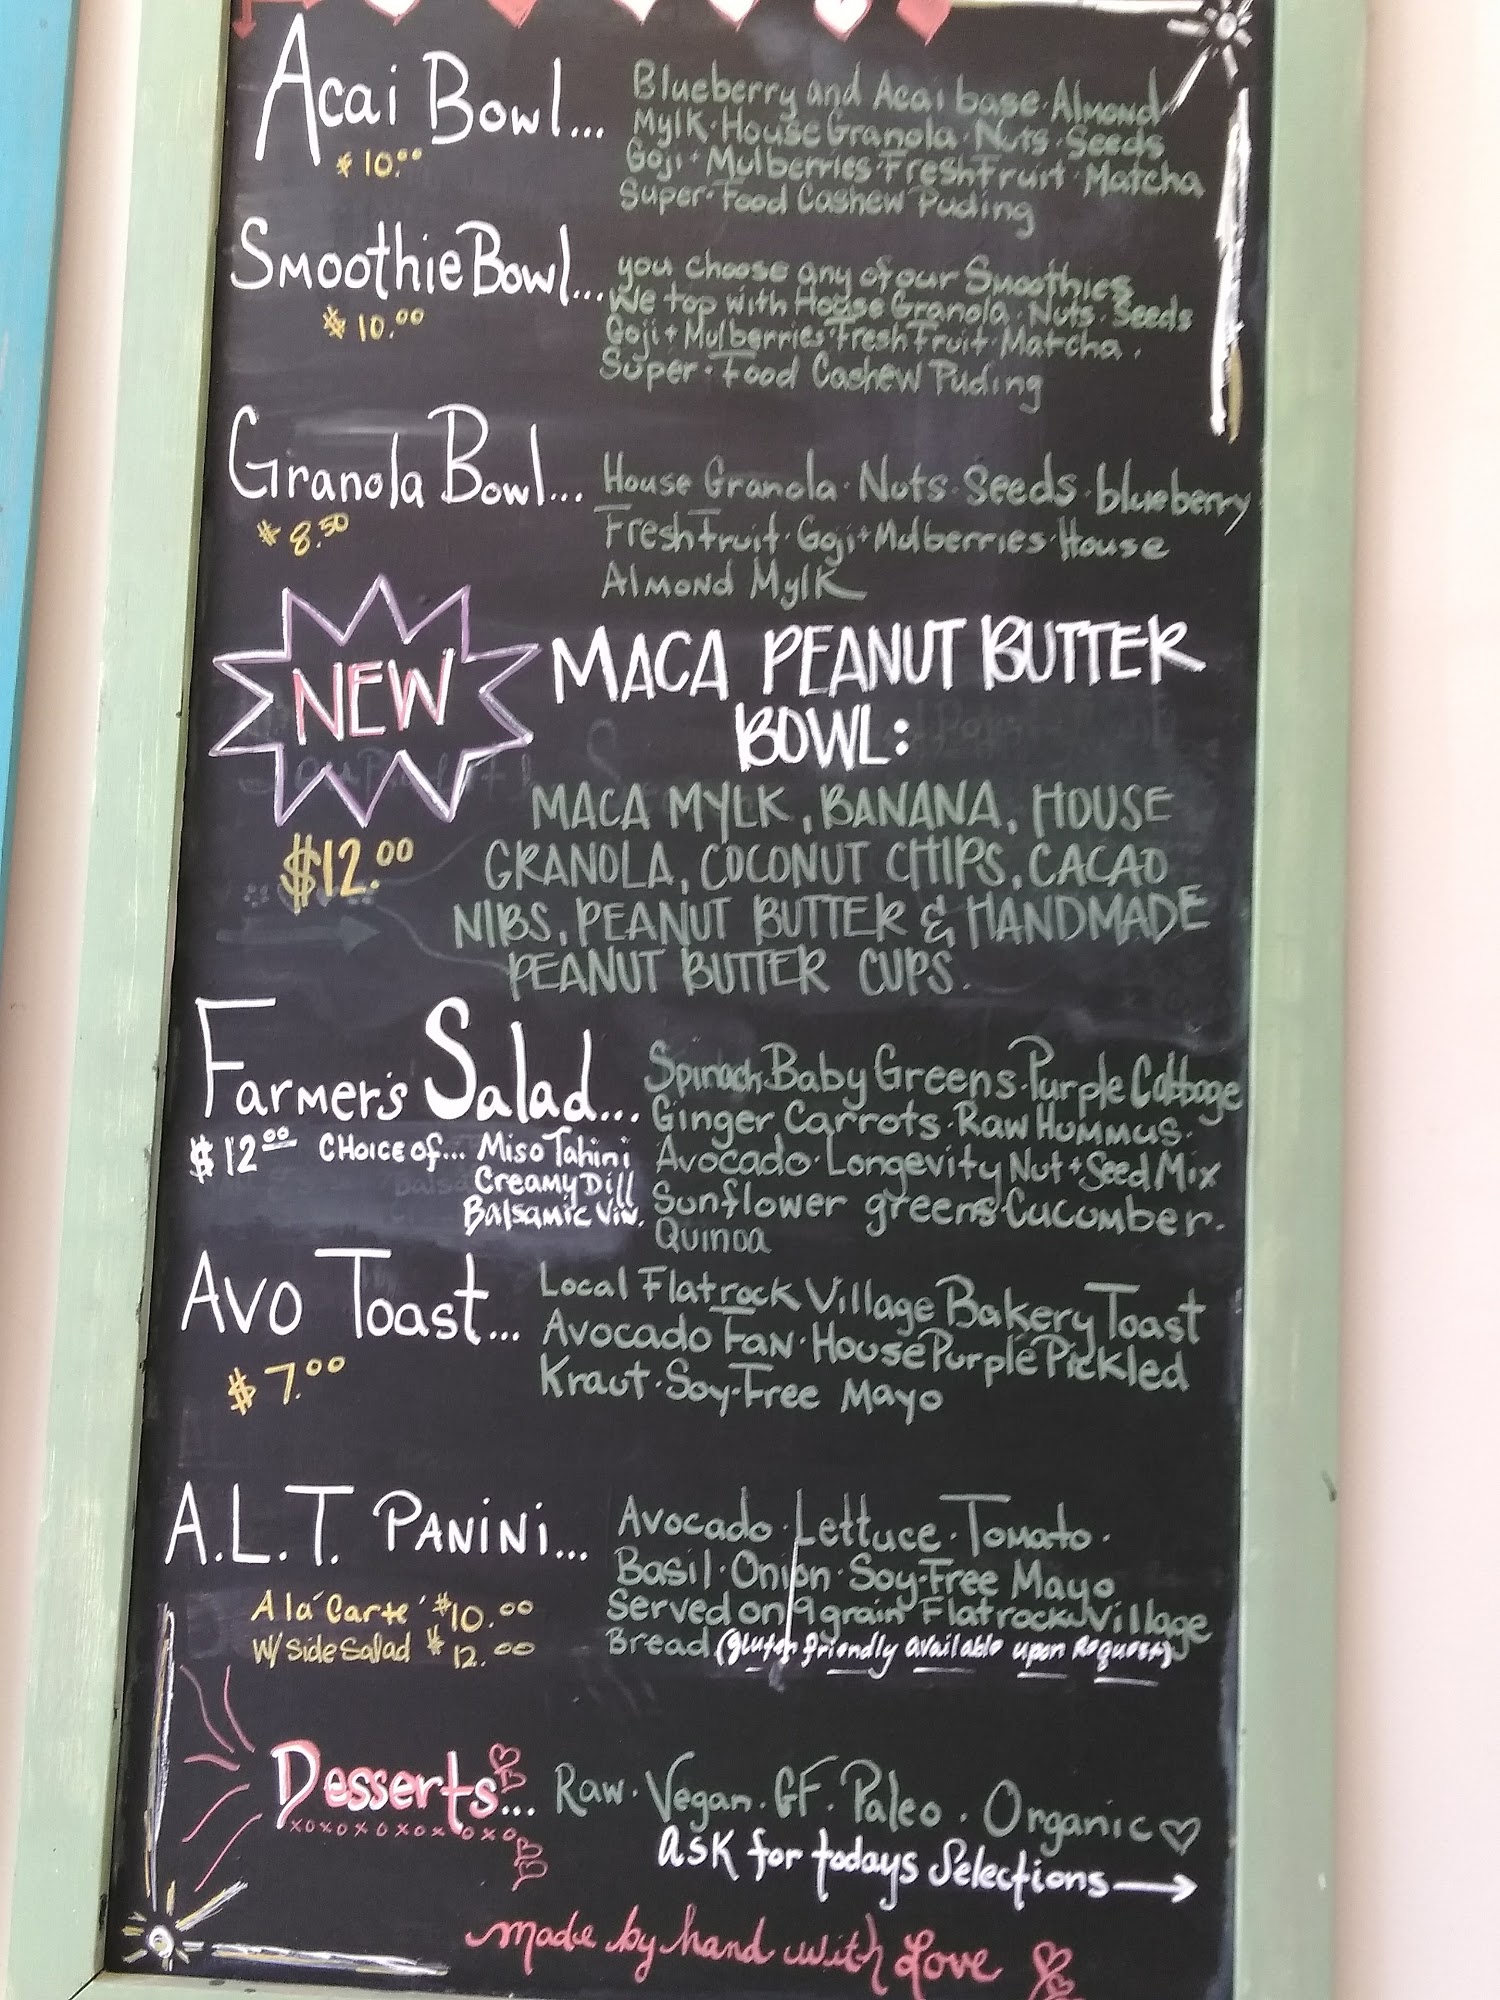 Acai Bowl...
$10.00
Blueberry and Acai base · Almond
Mylk · House Granola · Nuts · Seeds
Goji + Mulberries · Fresh Fruit · Matcha
Super · Food Cashew Puding
Smoothie Bowl...
$10.00
you choose any of our Smoothies
We top with House Granola · Nuts · Seeds
Goji + Mulberries · Fresh Fruit · Matcha ·
Super · Food Cashew Puding
Granola Bowl...
$8.50
House Granola · Nuts · Seeds · blueberry
Fresh Fruit · Goji + Mulberries · House
Almond Mylk
NEW
MACA PEANUT BUTTER
BOWL:
$12.00
MACA MYLK, BANANA, HOUSE
GRANOLA, COCONUT CHIPS, CACAO
NIBS, PEANUT BUTTER & HANDMADE
PEANUT BUTTER CUPS.
Farmer's Salad...
$12.00 CHOICE of... Miso Tahini
Creamy Dill
Balsamic Vin.
Spinach · Baby Greens · Purple Cabbage
Ginger Carrots · Raw Hummus ·
Avocado · Longevity Nut + Seed Mix
Sunflower greens · Cucumber ·
Quinoa
Avo Toast...
$7.00
Local Flatrock Village Bakery Toast
Avocado Fan · House Purple Pickled
Kraut · Soy-Free Mayo
A.L.T. PANINI...
A la' Carte' $10.00
W/ Side Salad $12.00
Avocado · Lettuce · Tomato ·
Basil · Onion · Soy-Free Mayo
Served on 9 grain Flatrock Village
Bread (gluten friendly available upon Request)
Desserts...
xoxoxoxoxoxo
Raw · Vegan · GF · Paleo · Organic ♡
ask for todays Selections →
made by hand with Love